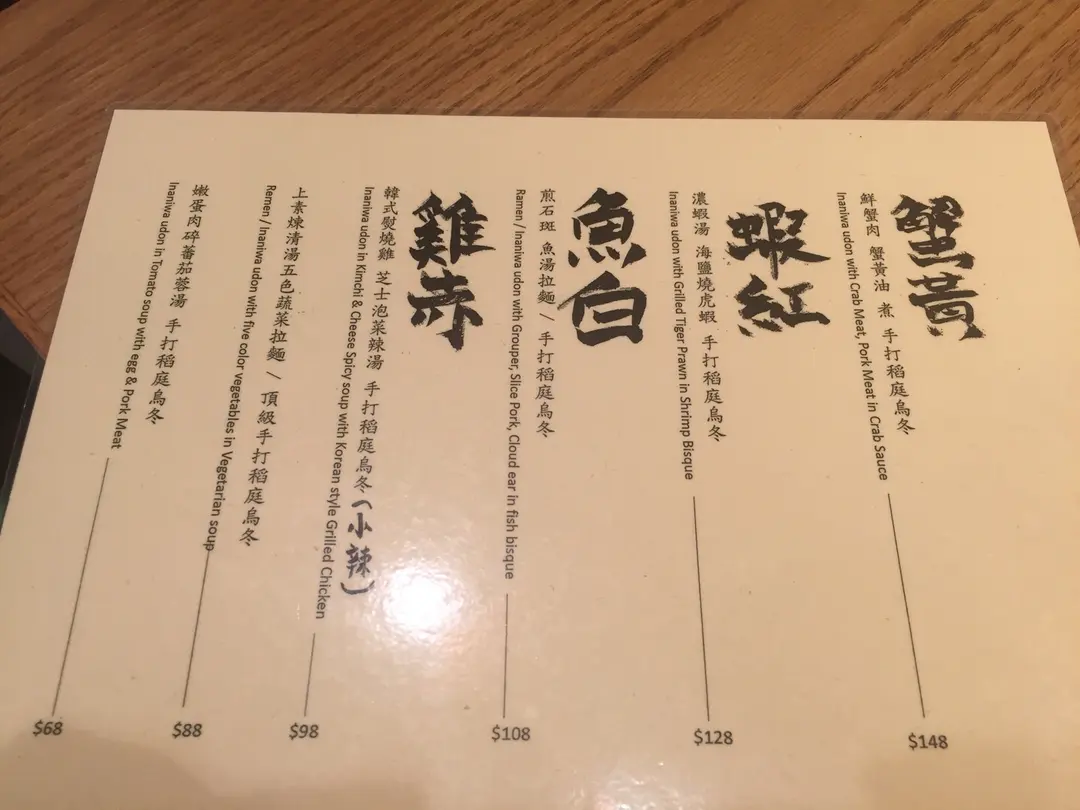 蟹黃
鮮蟹肉 蟹黃油 煮 手打稻庭烏冬
Inaniwa udon with Crab Meat, Pork Meat in Crab Sauce
$148
蝦紅
濃蝦湯 海鹽燒虎蝦 手打稻庭烏冬
Inaniwa udon with Grilled Tiger Prawn in Shrimp Bisque
$128
魚白
煎石斑 魚湯拉麵 / 手打稻庭烏冬
Ramen / Inaniwa udon with Grouper, Slice Pork, Cloud ear in fish bisque
$108
雞赤
韓式熨燒雞 芝士泡菜辣湯 手打稻庭烏冬(小辣)
Inaniwa udon in Kimchi & Cheese Spicy soup with Korean style Grilled Chicken
$98
上素煉清湯五色蔬菜拉麵 / 頂級手打稻庭烏冬
Remen / Inaniwa udon with five color vegetables in Vegetarian soup
$88
嫩蛋肉碎蕃茄蓉湯 手打稻庭烏冬
Inaniwa udon in Tomato soup with egg & Pork Meat
$68